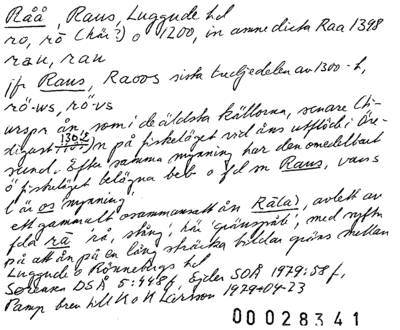 Råå, Raus, Luggude hd
ro, rö (hår?) o 1200, in amne dicta Raa 1398
rau, rau
jfr Raus, Raoos sista tredjedelen av 1300-t,
rö-ws, rö-vs
urspr ån, som i de äldsta källorna, senare (ti-
digast 1)n på fiskeläget vid åns utflöde i Öre-
sund. Efter samma mynning har den omedelbart
ö fiskeläget belägna beb o fd sn Raus, vars
l är os 'mynning'.
ett gammalt osammansatt ån Råla), avlett av
fda rā 'rå, stång', här 'gränspåle', med syftn
på att ån på en lång sträcka bildar gräns mellan
Luggude o Rönnebergs hd
Sørensen DSÅ 5:448f, Ejder SOÅ 1979:58f,
Pamp brev till K o K Larsson 1979-04-23
00028341